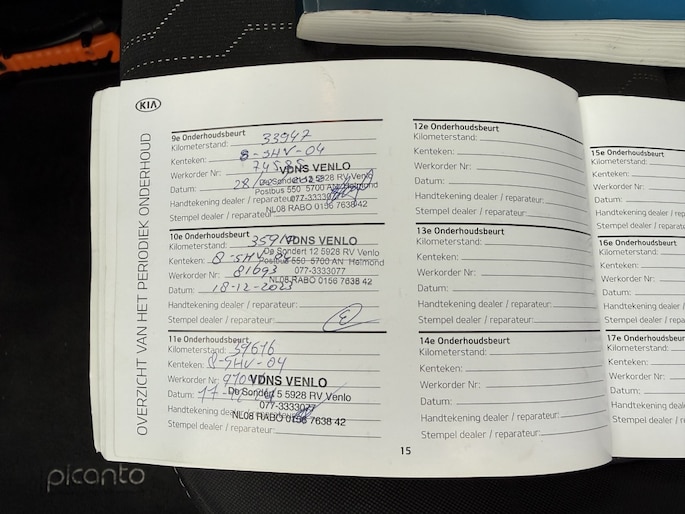 KIA
OVERZICHT VAN HET PERIODIEK ONDERHOUD
9e Onderhoudsbeurt
Kilometerstand: 33947
Kenteken: 8-SHV-04
Werkorder Nr: 74585
Datum: 28/
Handtekening dealer / reparateur:
Stempel dealer / reparateur:
VDNS VENLO
De Sondert 12 5928 RV Venlo
Postbus 550 5700 AN Helmond
077-3333077
NL08 RABO 0156 7638 42
10e Onderhoudsbeurt
Kilometerstand:
Kenteken: 8-SHV-04
Werkorder Nr: 81693
Datum: 18-12-2023
Handtekening dealer / reparateur:
Stempel dealer / reparateur:
VDNS VENLO
De Sondert 12 5928 RV Venlo
Postbus 550 5700 AN Helmond
077-3333077
NL08 RABO 0156 7638 42
11e Onderhoudsbeurt
Kilometerstand: 37676
Kenteken: 8-SHV-04
Werkorder Nr:
Datum: 17-
Handtekening dealer / reparateur:
Stempel dealer / reparateur:
VDNS VENLO
De Sondert 5 5928 RV Venlo
077-3333077
NL08 RABO 0156 7638 42
12e Onderhoudsbeurt
Kilometerstand:
Kenteken:
Werkorder Nr:
Datum:
Handtekening dealer / reparateur:
Stempel dealer / reparateur:
13e Onderhoudsbeurt
Kilometerstand:
Kenteken:
Werkorder Nr:
Datum:
Handtekening dealer / reparateur:
Stempel dealer / reparateur:
14e Onderhoudsbeurt
Kilometerstand:
Kenteken:
Werkorder Nr:
Datum:
Handtekening dealer / reparateur:
Stempel dealer / reparateur:
15
15e Onderhoudsbeurt
Kilometerstand:
Kenteken:
Werkorder Nr:
Datum:
Handtekening dealer /
Stempel dealer / repa
16e Onderhoudsbeurt
Kilometerstand:
Kenteken:
Werkorder Nr:
Datum:
Handtekening dealer
Stempel dealer / rep
17e Onderhoudsbeurt
Kilometerstand:
Kenteken:
Werkorder Nr:
Datum:
Handtekening deale
Stempel dealer / re
picanto